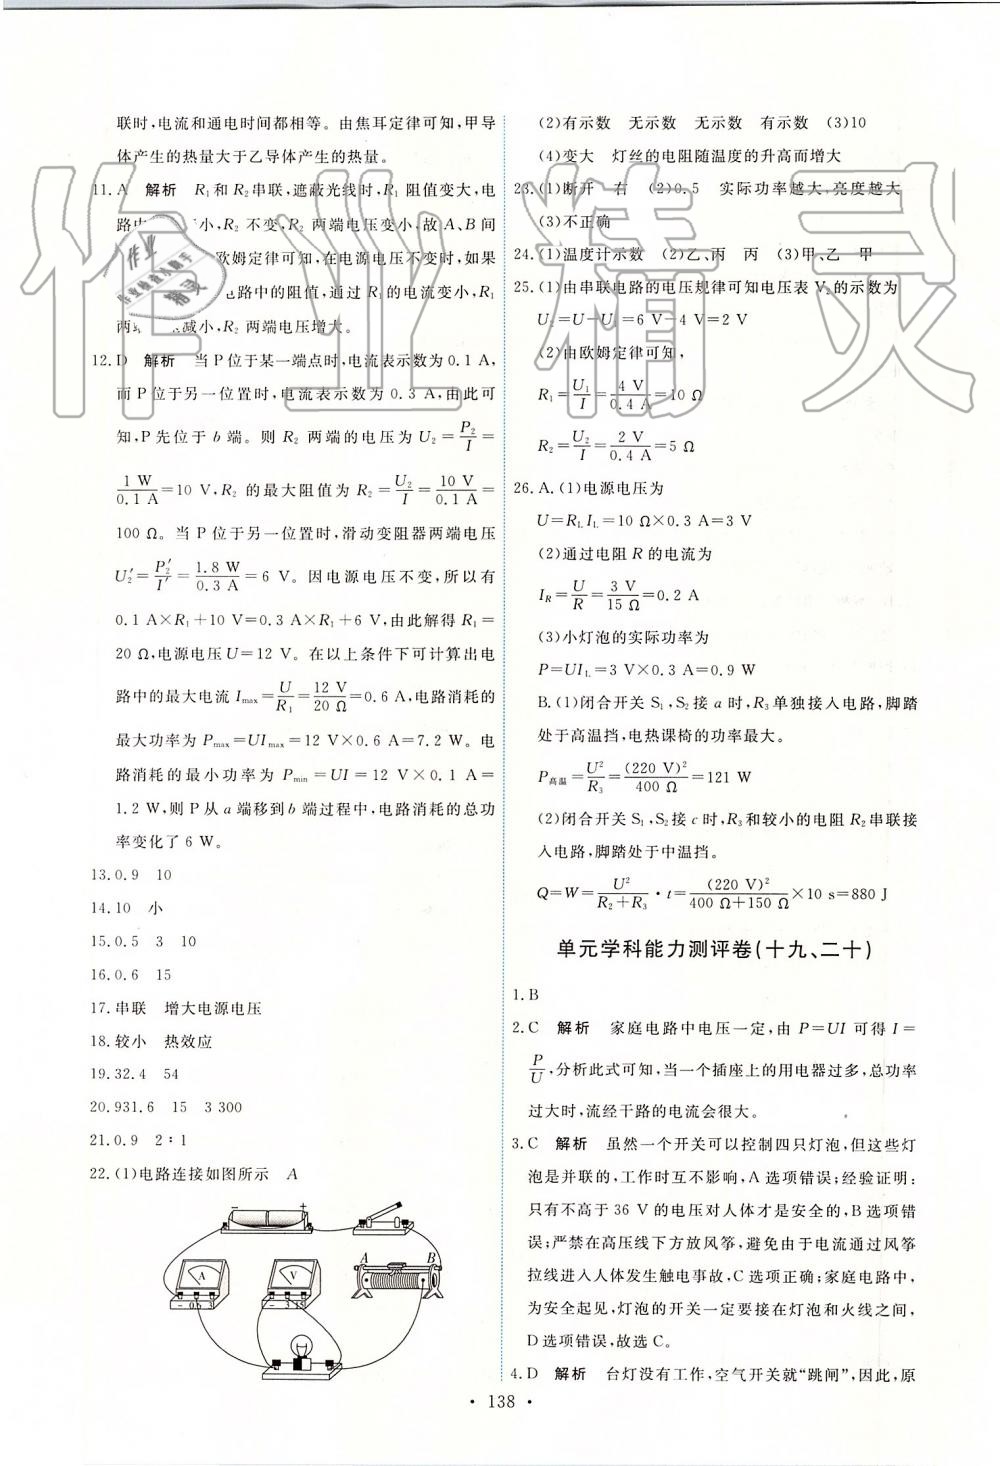 联时,电流和通电时间都相等。由焦耳定律可知,甲导
体产生的热量大于乙导体产生的热量。
11.A 解析 R₁和R₂串联,遮蔽光线时,R₁阻值变大,电
小,R₂不变,R₂两端电压变小,故A、B间
欧姆定律可知,在电源电压不变时,如果
电路中的阻值,通过R₁的电流变小,R₁
减小,R₂两端电压增大。
12.D 解析 当P位于某一端点时,电流表示数为0.1 A,
而P位于另一位置时,电流表示数为0.3 A,由此可
知,P先位于b端。则R₂两端的电压为U₂=P₂/I=
1 W/0.1 A=10 V,R₂的最大阻值为R₂=U₂/I=10 V/0.1 A=
100 Ω。当P位于另一位置时,滑动变阻器两端电压
U₂′=P₂′/I′=1.8 W/0.3 A=6 V。因电源电压不变,所以有
0.1 A×R₁+10 V=0.3 A×R₁+6 V,由此解得R₁=
20 Ω,电源电压U=12 V。在以上条件下可计算出电
路中的最大电流Imax=U/R₁=12 V/20 Ω=0.6 A,电路消耗的
最大功率为Pmax=UImax=12 V×0.6 A=7.2 W。电
路消耗的最小功率为Pmin=UI=12 V×0.1 A=
1.2 W,则P从a端移到b端过程中,电路消耗的总功
率变化了6 W。
13.0.9 10
14.10 小
15.0.5 3 10
16.0.6 15
17.串联 增大电源电压
18.较小 热效应
19.32.4 54
20.931.6 15 3 300
21.0.9 2∶1
22.(1)电路连接如图所示 A
− +
A V A B
− 0.6 3 − 3 15
(2)有示数 无示数 无示数 有示数 (3)10
(4)变大 灯丝的电阻随温度的升高而增大
23.(1)断开 右 (2)0.5 实际功率越大,亮度越大
(3)不正确
24.(1)温度计示数 (2)乙、丙 丙 (3)甲、乙 甲
25.(1)由串联电路的电压规律可知电压表V₂的示数为
U₂=U−U₁=6 V−4 V=2 V
(2)由欧姆定律可知,
R₁=U₁/I=4 V/0.4 A=10 Ω
R₂=U₂/I=2 V/0.4 A=5 Ω
26.A.(1)电源电压为
U=R_L I_L=10 Ω×0.3 A=3 V
(2)通过电阻R的电流为
I_R=U/R=3 V/15 Ω=0.2 A
(3)小灯泡的实际功率为
P=UI_L=3 V×0.3 A=0.9 W
B.(1)闭合开关S₁,S₂接a时,R₃单独接入电路,脚踏
处于高温挡,电热课椅的功率最大。
P高温=U²/R₃=(220 V)²/400 Ω=121 W
(2)闭合开关S₁,S₂接c时,R₃和较小的电阻R₂串联接
入电路,脚踏处于中温挡。
Q=W=U²/(R₂+R₃)·t=(220 V)²/(400 Ω+150 Ω)×10 s=880 J
单元学科能力测评卷(十九、二十)
1.B
2.C 解析 家庭电路中电压一定,由P=UI可得I=
P/U,分析此式可知,当一个插座上的用电器过多,总功率
过大时,流经干路的电流会很大。
3.C 解析 虽然一个开关可以控制四只灯泡,但这些灯
泡是并联的,工作时互不影响,A选项错误;经验证明:
只有不高于36 V的电压对人体才是安全的,B选项错
误;严禁在高压线下方放风筝,避免由于电流通过风筝
拉线进入人体发生触电事故,C选项正确;家庭电路中,
为安全起见,灯泡的开关一定要接在灯泡和火线之间,
D选项错误,故选C。
4.D 解析 台灯没有工作,空气开关就“跳闸”,因此,原
• 138 •
作业精灵
作业
精灵